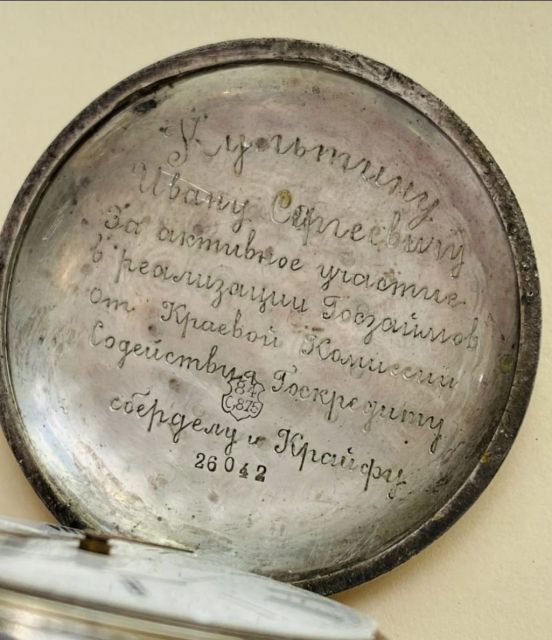 Культину
Ивану Сергеевичу
За активное участие
в реализации Госзаймов
от Краевой Комиссии
Содействия Госкредиту
84
0,875
сберделу и Крайфу
26042